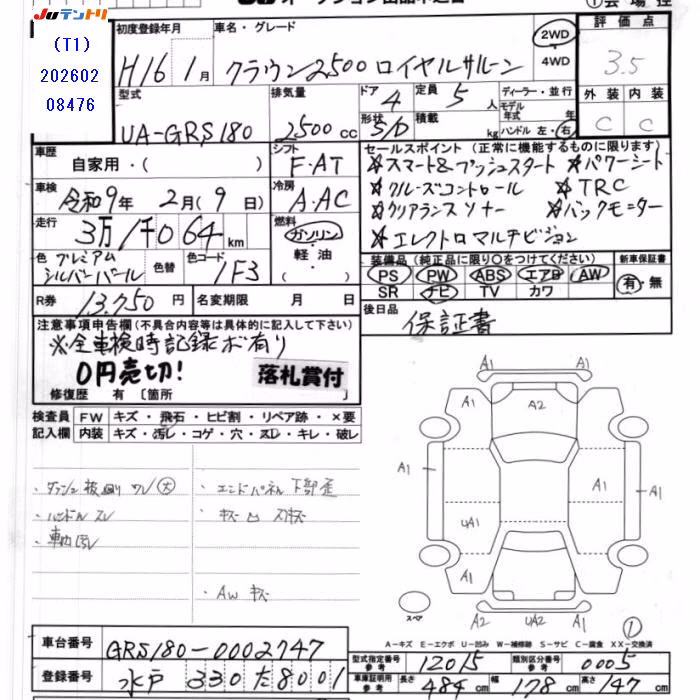 Juテントリ
(T1)
202602
08476
初度登録年月 車名・グレード
H16 1月 クラウン2500 ロイヤルサルーン
2WD
4WD
評価点
3.5
外装 内装
C C
型式 排気量 ドア 定員 ディーラー・並行
UA-GRS180 2500cc 4 5人 モデル年式 年
形状 5/D 積載 kg ハンドル 左・右
車歴 シフト
自家用・( ) F・AT
車検 冷房
令和9年 2月(9日) A・AC
走行 燃料
3万1千064km ガソリン・軽油・( )
色 プレミアムシルバーパール 色替 色コード 1F3
R券 13,750円 名変期限 月 日
セールスポイント(正常に機能するものに限ります)
☆スマート&プッシュスタート ☆パワーシート
☆クルーズコントロール ☆TRC
☆クリアランスソナー ☆バックモニター
☆エレクトロマルチビジョン
装備品(純正品に限り○をつけてください) 新車保証書
PS PW ABS エアB AW
SR ナビ TV カワ
有・無
後日品
保証書
注意事項申告欄(不具合内容等は具体的に記入して下さい)
※全車検時記録ボ有り
0円売切! 落札賞付
修復歴 有 〔箇所
検査員 FW キズ・飛石・ヒビ割・リペア跡・×要
記入欄 内装 キズ・汚レ・コゲ・穴・スレ・キレ・破レ
・ハンドル スレ
・エンドパネル下部歪
・AW キズ
A1 A1
A1 A2 A1
A1 A1 A1
UA1
A1
A2 UA2 A1
スペア
①
A-キズ E-エクボ U-凹み W-補修跡 S-サビ C-腐食 XX-交換済
車台番号 GRS180-0002747
登録番号 水戸 330 た 8001
型式指定番号 参考 12015 類別区分番号 参考 0005
車庫証明用 参考 長さ 484 幅 178 高さ 147cm